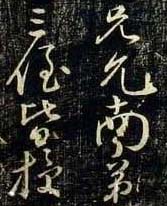 兄允南弟
三侄皆授